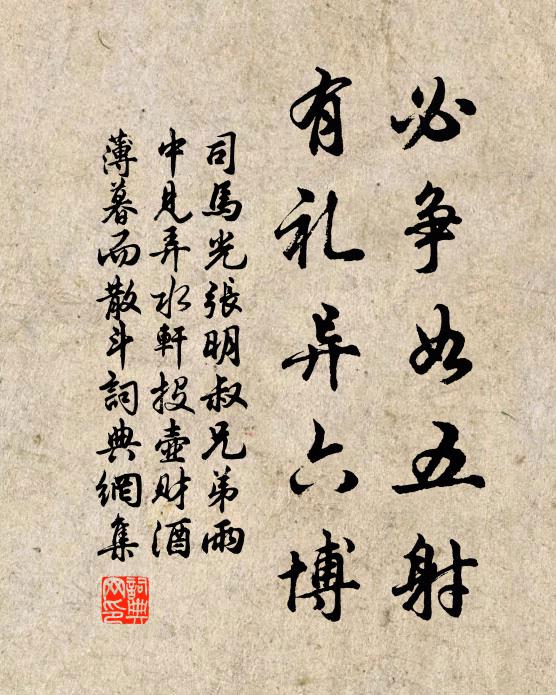 必争如五射
有礼异六博
司馬光張明叔兄弟雨
中見弄水軒投壺财酒
薄暮而散斗詞典網集
詞典
网印